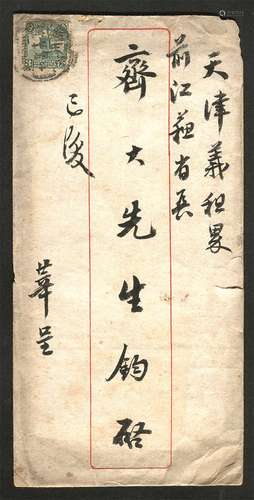 天津義租界
前江蘇省長
齊大先生鈞啓
華呈